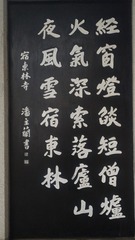 經窗燈燄短僧爐
火氣深索落廬山
夜風雪宿東林
宿東林寺 潘主蘭書